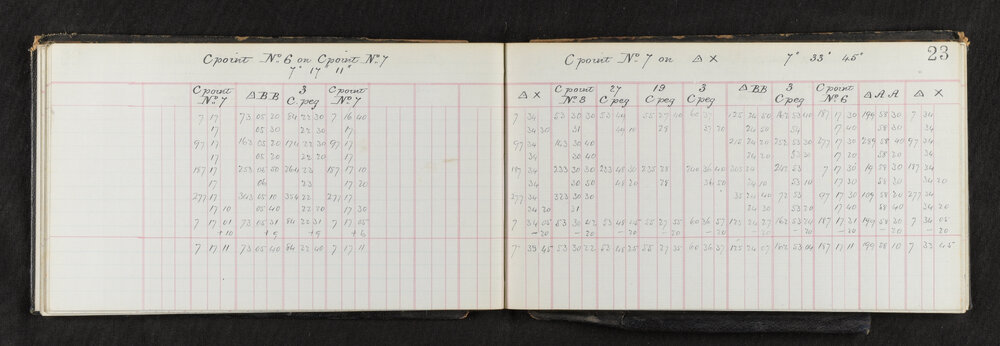 C point No. 6 on C point No. 7
7° 17' 11"
C point No. 7 Δ B B 3 C. peg C point No. 7
7 17 73 05 20 84 22 30 7 16 40
17 05 30 22 30 17
97 17 163 05 20 174 22 30 97 17
17 05 20 22 20 17
187 17 253 05 50 264 23 187 17 10
17 06 23 17 20
277 17 343 05 10 354 22 277 17
17 10 05 40 22 20 17 30
7 17 01 73 05 31 84 22 31 7 17 05
+10 +9 +9 +6
7 17 11 73 05 40 84 22 40 7 17 11
23
C point No. 7 on Δ X 7° 33' 45"
Δ X C point No. 8 27 C peg 19 C peg 3 C peg Δ BB 3 C peg C point No. 6 Δ A A Δ X
7 34 53 30 30 53 49 55 27 40 60 37 125 24 50 162 53 40 187 17 30 199 58 30 7 34
34 30 31 28 24 50 54 17 40 58 30 34
97 34 143 30 40 215 24 20 252 53 30 277 17 30 289 58 40 97 34
34 30 40 24 20 17 20 58 20 34
187 34 233 30 30 233 48 30 235 28 240 36 40 7 17 30 19 58 30 187 34
34 30 50 48 20 28 36 50 24 10 53 10 17 30 58 20 34 20
277 34 323 30 30 35 24 40 72 53 97 17 30 109 58 30 277 34
34 20 31 24 20 53 20 17 40 58 40 34 20
7 34 05 53 30 42 53 48 45 55 27 55 60 36 57 125 24 27 162 53 24 187 17 31 199 58 30 7 34 05
-20 -20 -20 -20 -20 -20 -20 -20 -20 -20
7 33 45 53 30 22 53 48 25 55 27 35 60 36 37 125 24 07 162 53 04 187 17 11 199 58 10 7 33 45